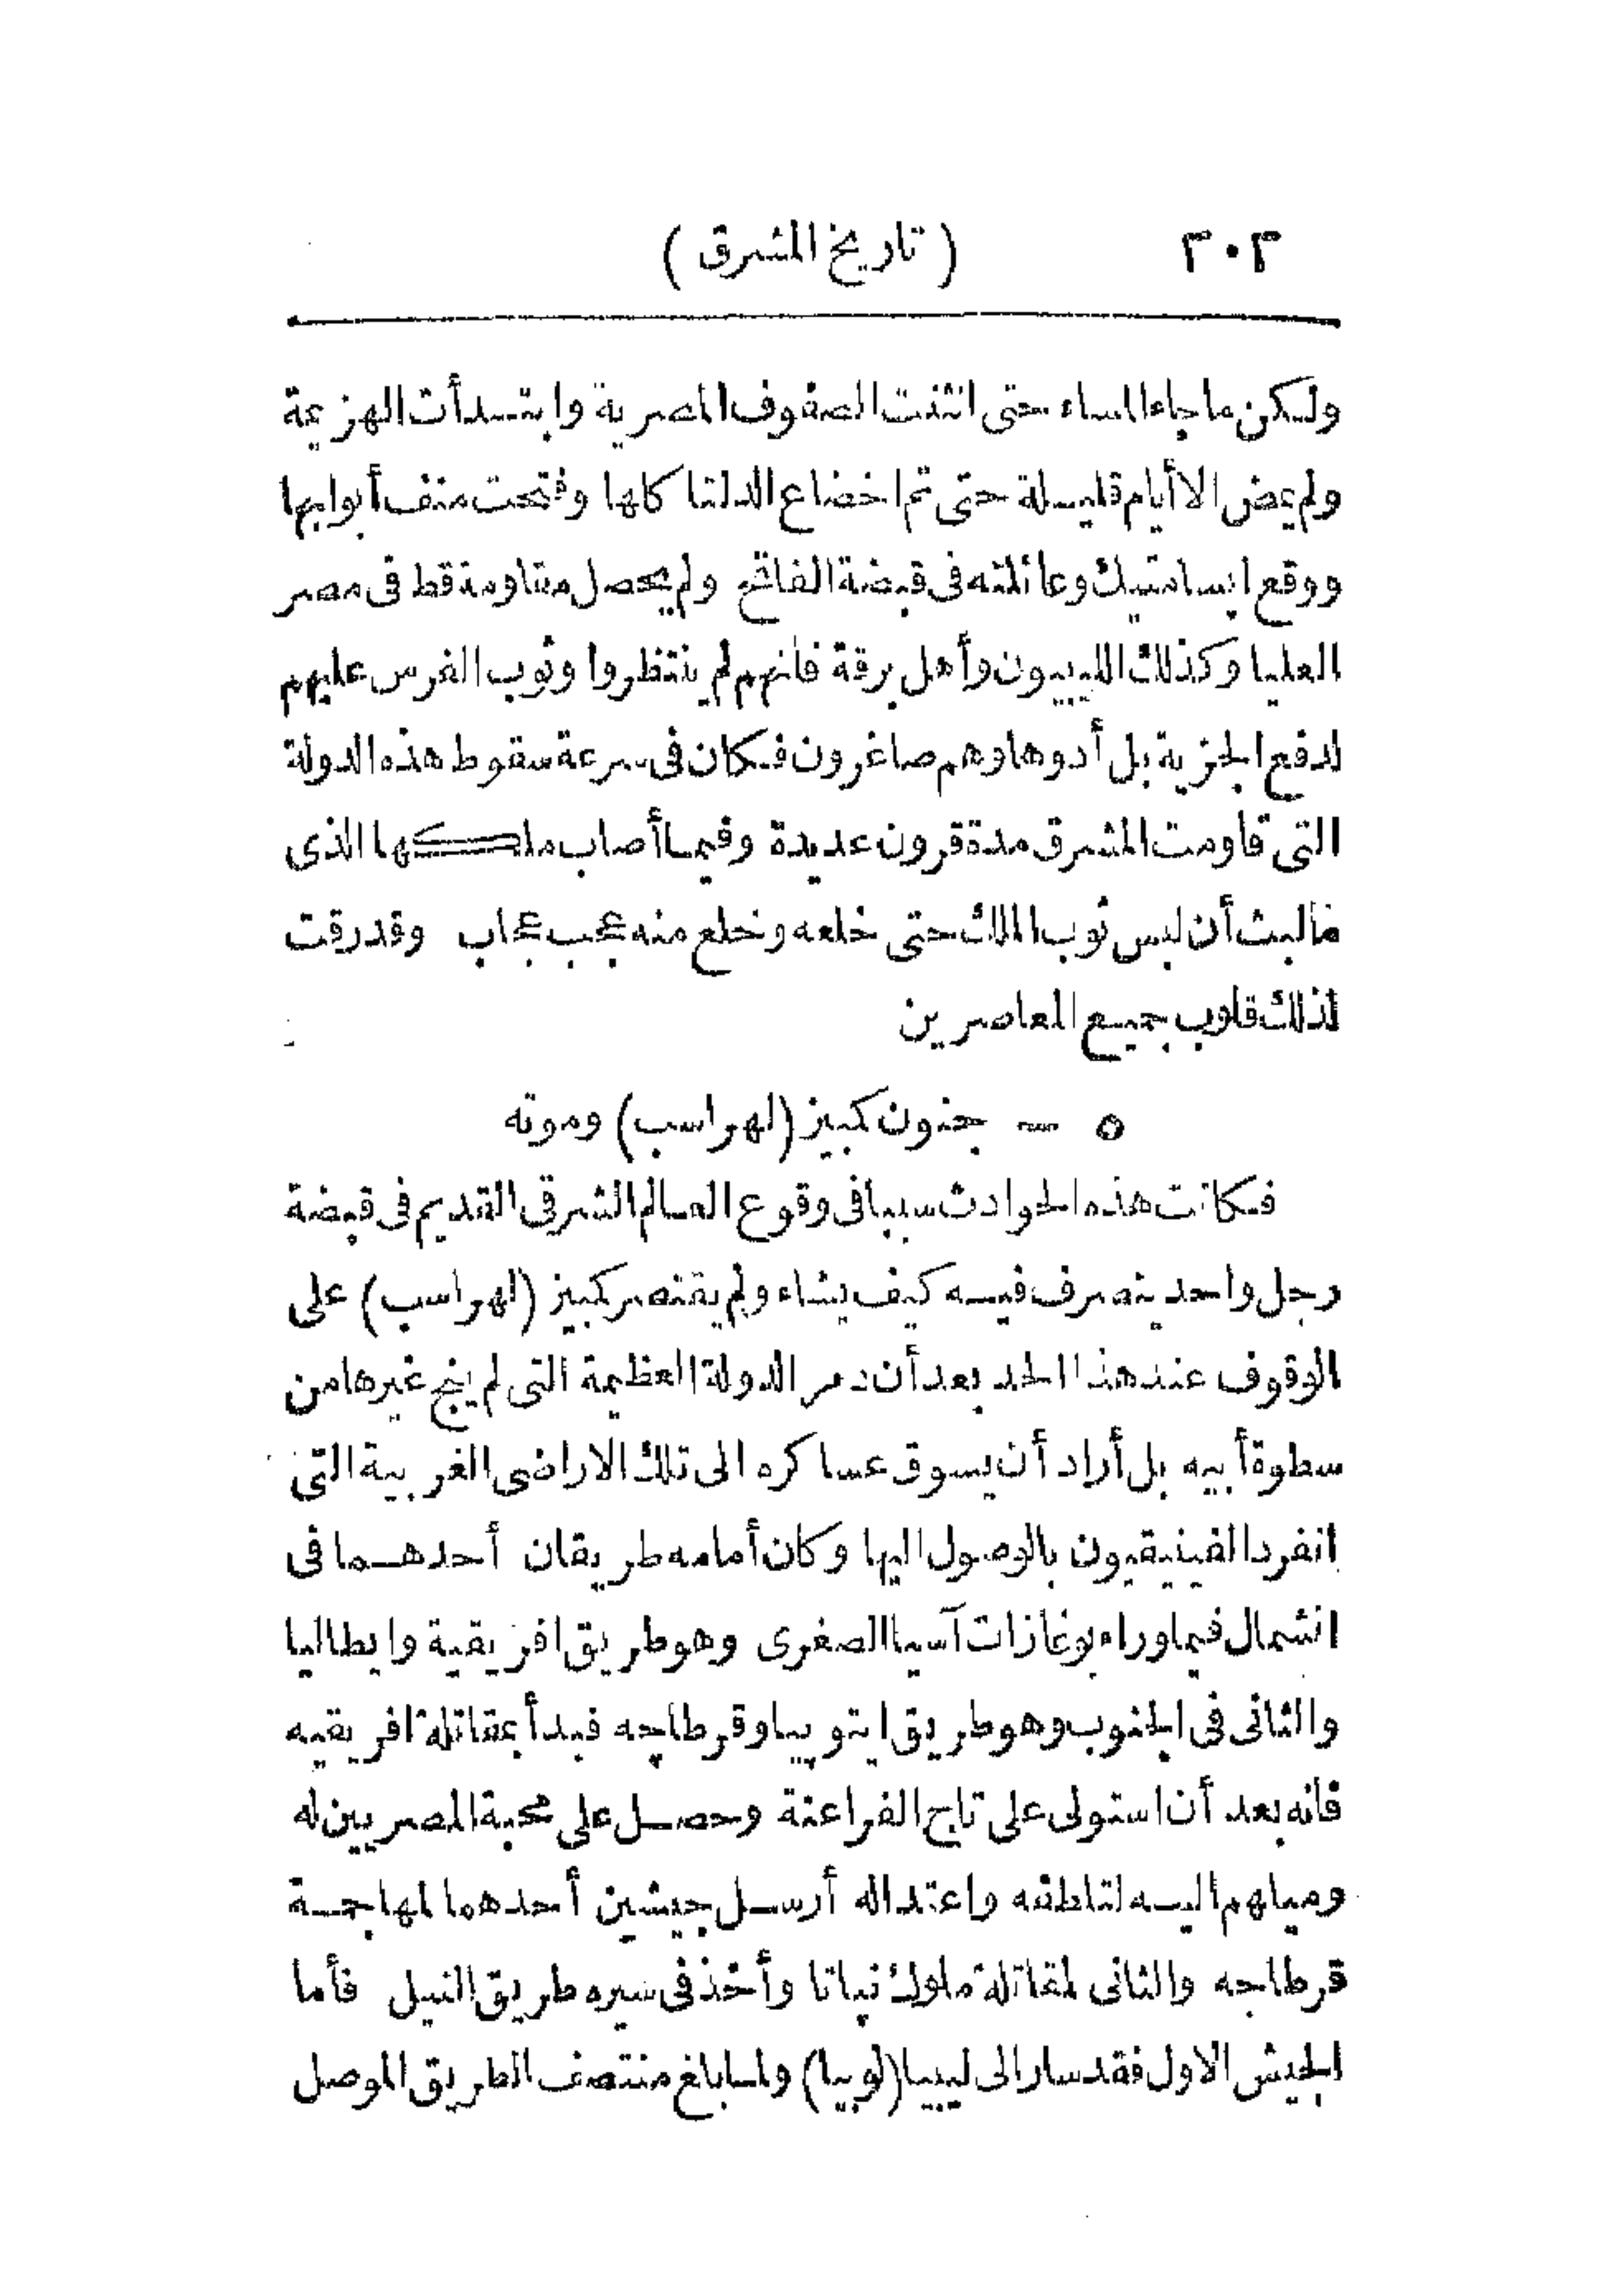 ٣٠٢ (تاريخ المشرق)
ولكن ماجاء المساء حتى انثنت الصفوف المصرية وابتدأت الهزيمة
ولم يمض الا أيام قليلة حتى تم اخضاع الدلتا كلها وفتحت منف أبوابها
ووقع ابسامتيك وعائلته فى قبضة الفاتح ولم يحصل مقاومة قط فى مصر
العليا وكذلك الليبيون وأهل برقة فانهم لم ينتظروا وثوب الفرس عليهم
لدفع الجزية بل أدوها وهم صاغرون فكان فى سرعة سقوط هذه الدولة
التى قاومت المشرق مدة قرون عديدة وفيما أصاب ملكها الذى
مالبث أن لبس ثوب الملك حتى خلعه وخلع منه عجب عجاب وقد رقت
لذلك قلوب جميع المعاصرين
٥ — جنون كبيز (لهراسب) وموته
فكانت هذه الحوادث سببا فى وقوع العالم الشرقى القديم فى قبضة
رجل واحد يتصرف فيه كيف يشاء ولم يقتصر كبيز (لهراسب) على
الوقوف عند هذا الحد بعد أن دمر الدولة العظيمة التى لم ينج غيرها من
سطوة أبيه بل أراد أن يسوق عساكره الى تلك الاراضى الغربية التى
انفرد الفينيقيون بالوصول اليها وكان أمامه طريقان أحدهما فى
الشمال فيما وراء بوغازات آسيا الصغرى وهو طريق افريقية وايطاليا
والثانى فى الجنوب وهو طريق ايتوپيا وقرطاچه فبدأ بمقاتلة افريقيه
فانه بعد أن استولى على تاج الفراعنة وحصل على محبة المصريين له
وميلهم اليه لتلطفه واعتداله أرسل جيشين أحدهما لمهاجمة
قرطاجه والثانى لمقاتلة ملوك نپاتا وأخذ فى سيره طريق النيل فأما
الجيش الاول فقد سار الى ليبيا (لوبيا) ولما بلغ منتصف الطريق الموصل